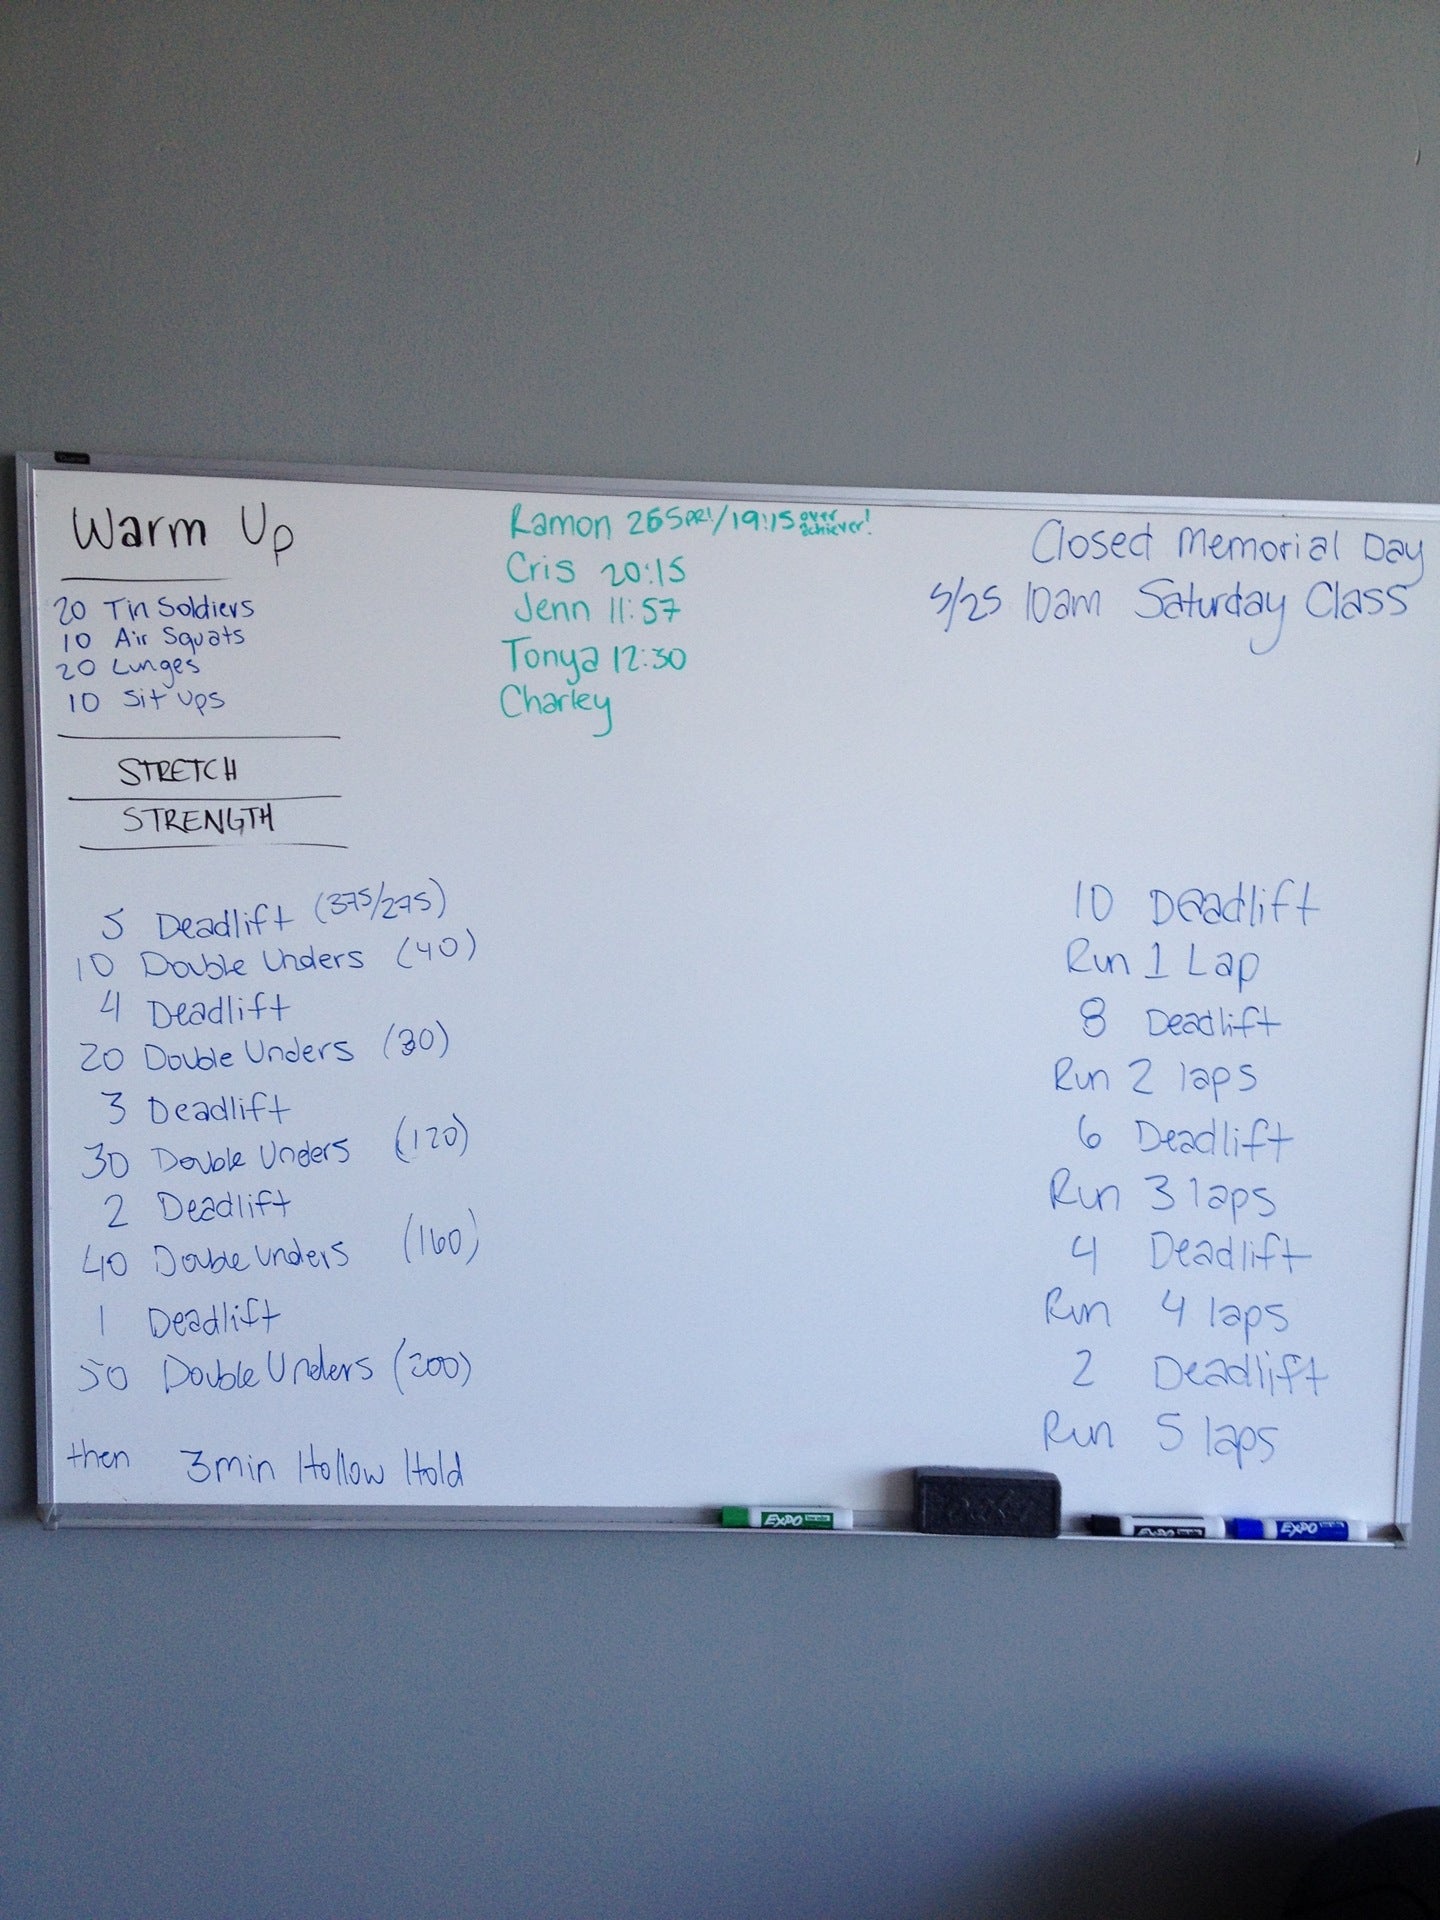 Warm Up
20 Tin Soldiers
10 Air Squats
20 Lunges
10 Sit ups
STRETCH
STRENGTH
5 Deadlift (375/275)
10 Double Unders (40)
4 Deadlift
20 Double Unders (80)
3 Deadlift
30 Double Unders (120)
2 Deadlift
40 Double Unders (160)
1 Deadlift
50 Double Unders (200)
then 3min Hollow Hold
Ramon 265 PR!/19:15 over achiever!
Cris 20:15
Jenn 11:57
Tonya 12:30
Charley
Closed Memorial Day
5/25 10am Saturday Class
10 Deadlift
Run 1 Lap
8 Deadlift
Run 2 laps
6 Deadlift
Run 3 laps
4 Deadlift
Run 4 laps
2 Deadlift
Run 5 laps
EXPO
EXPO
EXPO